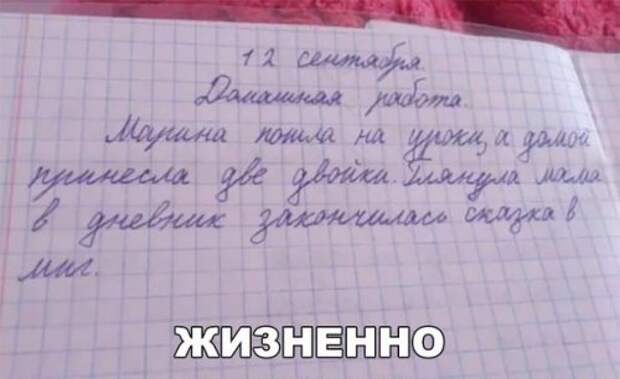 12 сентября.
Домашняя работа.
Марина пошла на уроки, а домой
принесла две двойки. Глянула мама
в дневник закончилась сказка в
миг.
ЖИЗНЕННО